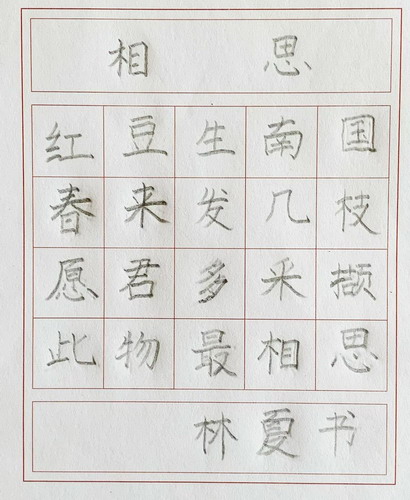 相思
红豆生南国
春来发几枝
愿君多采撷
此物最相思
林夏书